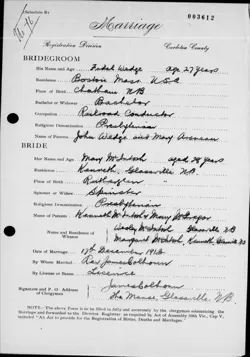 (Schedule B)
003612
Marriage
Registration Division
Carleton County
BRIDEGROOM
His Name and Age Wadge age 27 years
Residence Boston Mass. U.S.A
Place of Birth Chatham N.B
Bachelor or Widower Bachelor
Occupation Railroad Conductor
Religious Denomination Presbyterian
Names of Parents John Wadge and Mary
BRIDE
Her Name and Age Mary McIntosh aged 28 years
Residence Glassville N.B.
Place of Birth
Spinster or Widow Spinster
Religious Denomination Presbyterian
Names of Parents Kenneth McIntosh & Mary McGregor
Name and Residence of Witnesses McIntosh Glassville N.B
Margaret McIntosh, Kenneth,
Date of Marriage 17th December 1912
By Whom Married Rev James Colhoun
By License or Banns Licence
Signature and P. O. Address of Clergyman James Colhoun
The Manse, Glassville, N.B.
NOTE: The above Form is to be filled in fully and accurately by the clergyman solemnizing the Marriage and forwarded to the Division Registrar as required by Act of Assembly
"An Act to provide for the Registration of Births, Deaths and Marriages."